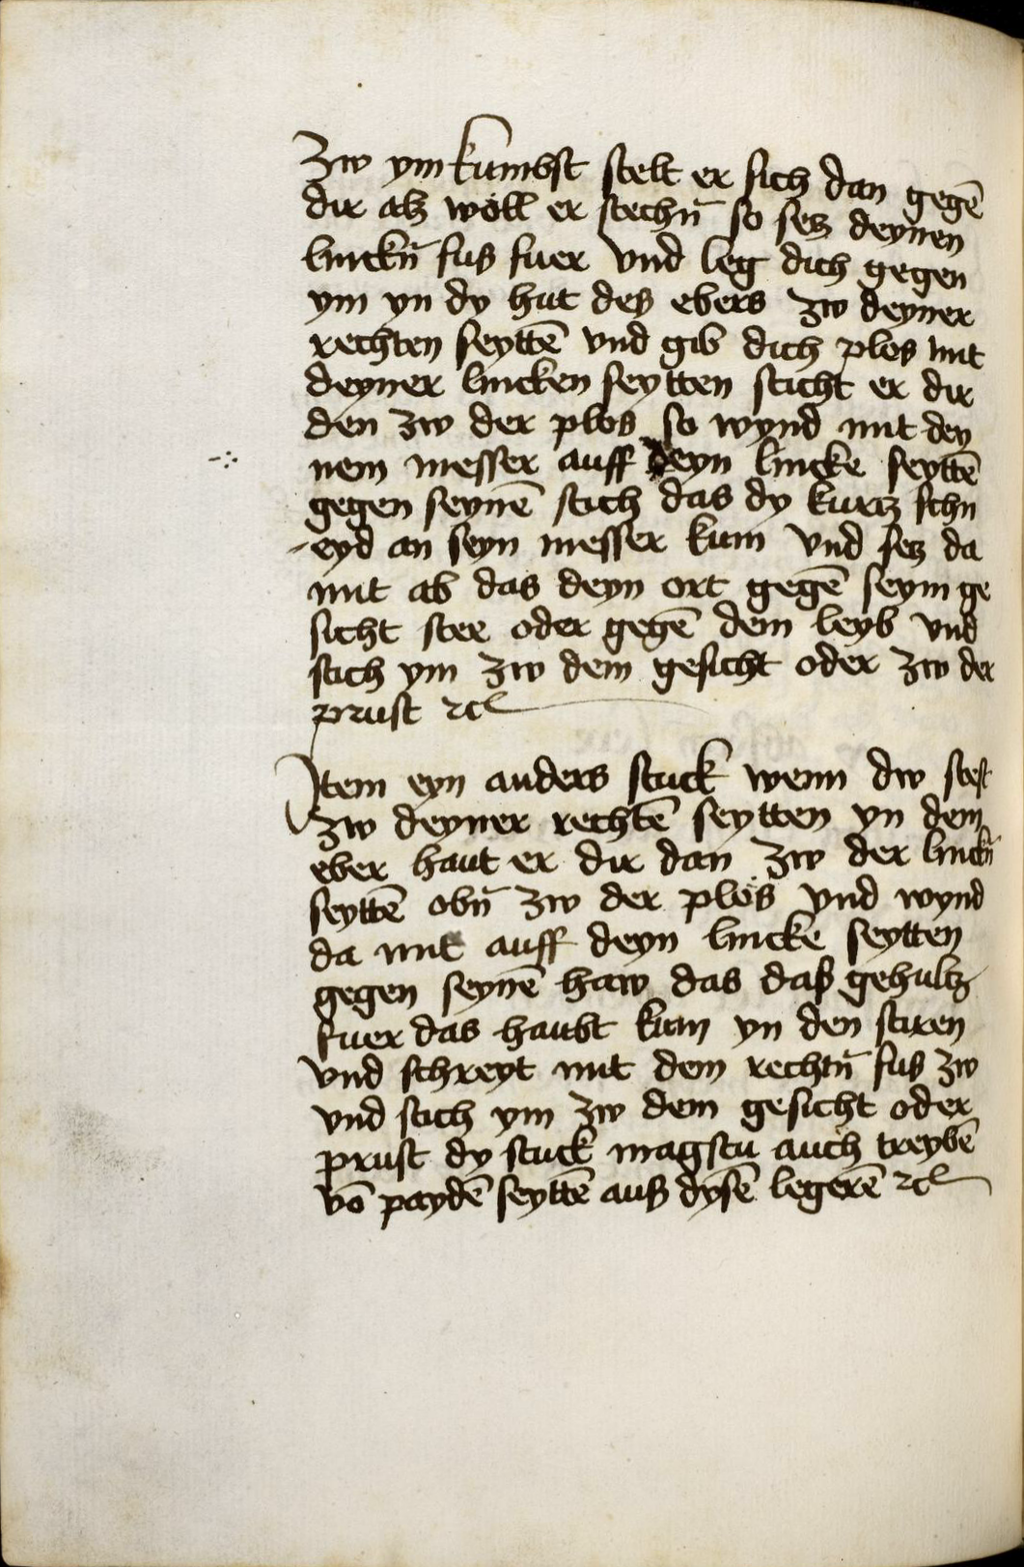 Zw ym kumbst stelt er sich dan gegē
dir alz wöll er stechn̄ so setz deynen
linckn̄ fus fuer vnd leg dich gegen
ym yn dy hut des ebers zw deyner
rechten seyttē vnd gib dich plos mit
deyner lincken seytten sticht er dir
den zw der plos so wynd mit dey
nem messer auff deyn lincke seyttē
gegen seynē stich das dy kurtz schn
eyd an seyn messer kum vnd setz da
mit ab das deyn ort gegē seym ge
sicht stee oder gegē dem leyb vnd
stich ym zw dem gesicht oder zw der
prust ꝛcͭ
Item eyn anders stuck wenn dw stest
zw deyner rechtē seytten yn dem
eber haut er dir dan zw der linckn̄
seyttē obn̄ zw der plös vnd wynd
da mit auff deyn lincke seytten
gegen seynē haw das daß gehultz
fuer das haubt kum yn den stiren
vnd schreyt mit dem rechtn̄ fus zw
vnd stich ym zw dem gesicht oder
prust dy stuck magstu auch treybē
vō paydē seyttē auß dysē legerē ꝛcͭ